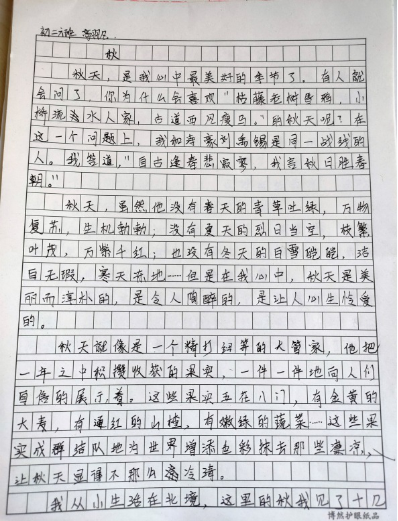 初二六班
秋
秋天，是我心中最美好的季节了。有人就
会问了，你为什么会喜欢“枯藤老树昏鸦，小
桥流水人家，古道西风瘦马。”的秋天呢？在
这一个问题上，我和诗豪刘禹锡是同一战线的
人。我答道，“自古逢秋悲寂寥，我言秋日胜春
朝。”
秋天，虽然他没有春天的青草吐绿，万物
复苏，生机勃勃；没有夏天的烈日当空，枝繁
叶茂，万紫千红；也没有冬天的白雪皑皑，洁
白无瑕，寒天冻地……但是在我心中，秋天是美
丽而淳朴的，是令人陶醉的，是让人心生怜爱
的。
秋天就像是一个精打细算的大管家，他把
一年之中积攒收获的果实，一件一件地向人们
骄傲的展示着。这些果实五花八门，有金黄的
大麦，有通红的山楂，有嫩绿的蔬菜…这些果
实成群结队地为世界增添色彩抹去那些凄凉，
让秋天显得不那么凄冷清。
我从小生活在北境，这里的秋我见了十几
博然护眼纸品